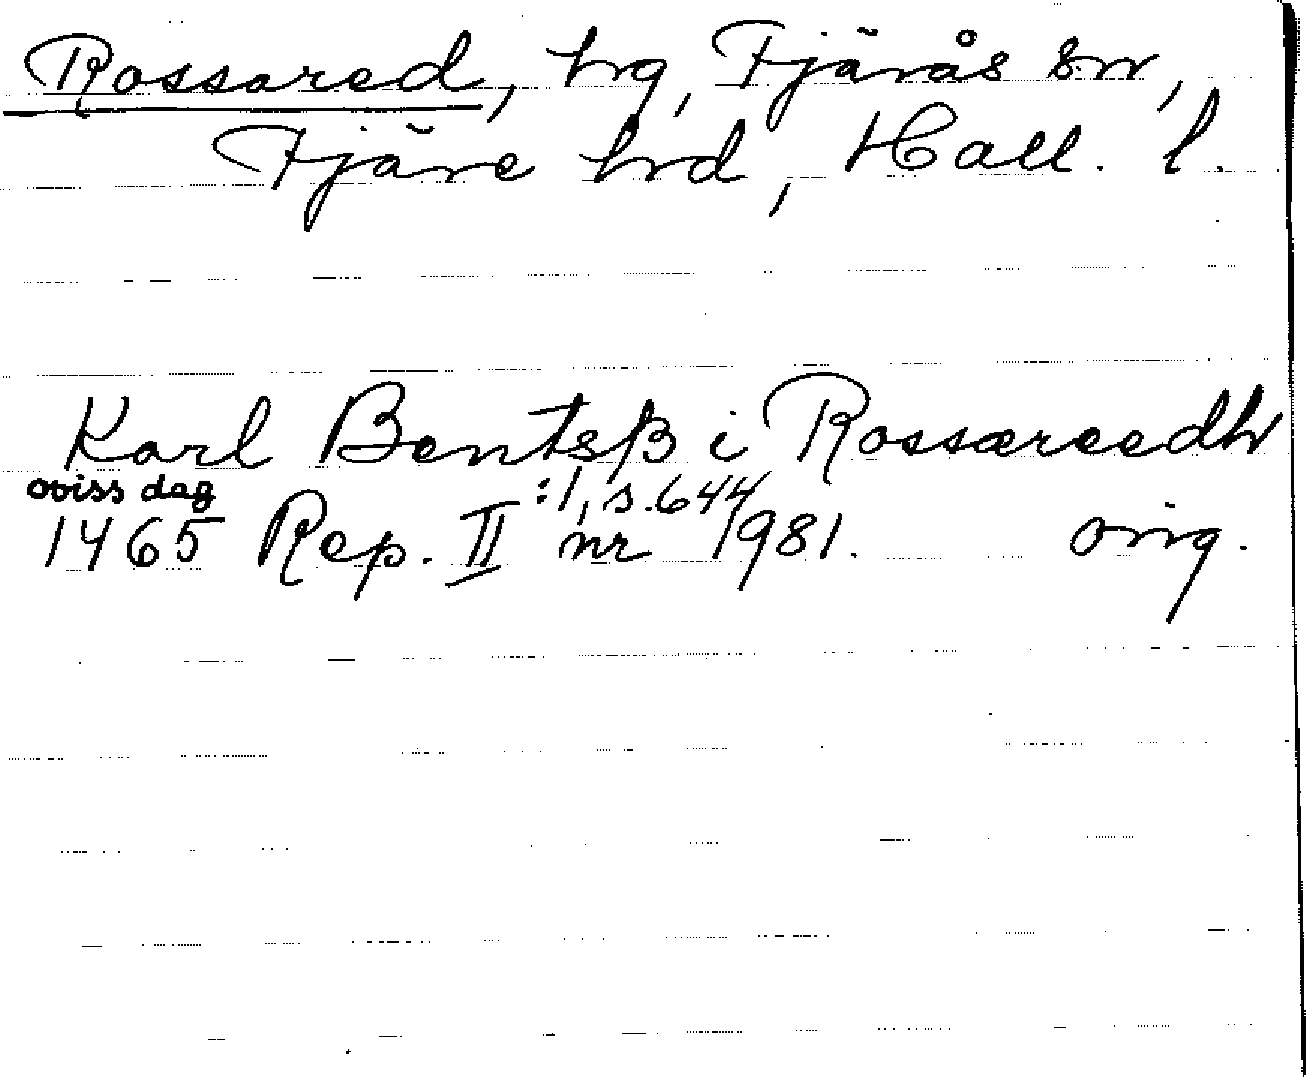 Rossared, hg, Fjärås sn,
Fjäre hd, Hall. l.
Karl Bentsß i Rossæreedh
oviss dag :1, s.644
1465 Rep. II nr 1981. orig.